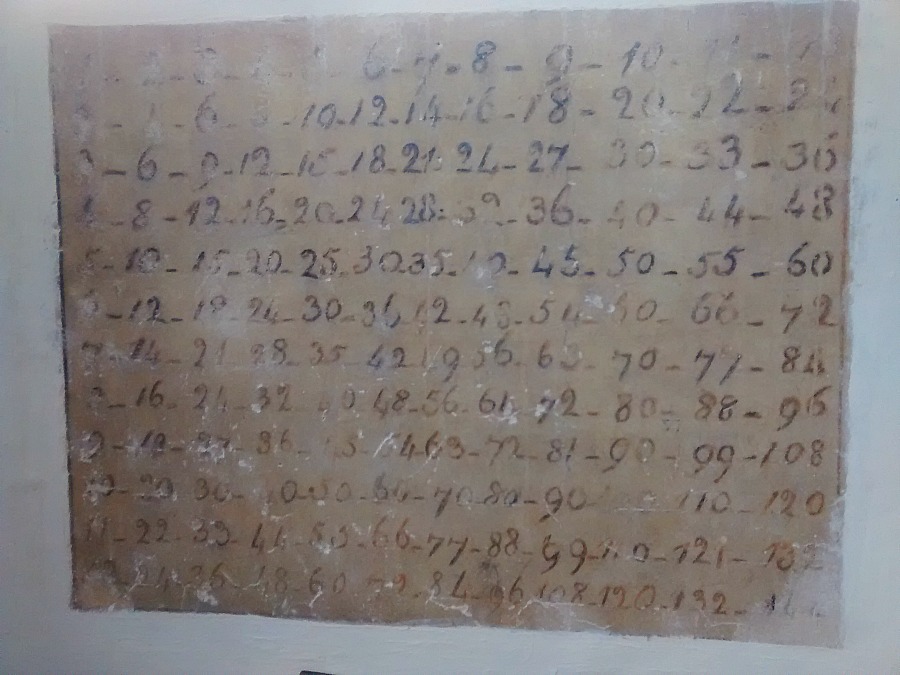 2 - 3 - 6 - 7 - 8 - 9 - 10 - 11 -
6 - 10 - 12 - 14 - 16 - 18 - 20 - 22 - 24
3 - 6 - 9 - 12 - 15 - 18 - 21 - 24 - 27 - 30 - 33 - 36
4 - 8 - 12 - 16 - 20 - 24 - 28 - 32 - 36 - 40 - 44 - 48
5 - 10 - 15 - 20 - 25 - 30 - 35 - 40 - 45 - 50 - 55 - 60
12 - 18 - 24 - 30 - 36 - 42 - 48 - 54 - 60 - 66 - 72
7 - 14 - 21 - 28 - 35 - 42 - 49 - 56 - 63 - 70 - 77 - 84
8 - 16 - 24 - 32 - 40 - 48 - 56 - 64 - 72 - 80 - 88 - 96
9 - 18 - 27 - 36 - 45 - 54 - 63 - 72 - 81 - 90 - 99 - 108
10 - 20 - 30 - 40 - 50 - 60 - 70 - 80 - 90 - 110 - 120
11 - 22 - 33 - 44 - 55 - 66 - 77 - 88 - 99 - 110 - 121 - 132
12 - 24 - 36 - 48 - 60 - 72 - 84 - 96 - 108 - 120 - 132 - 144